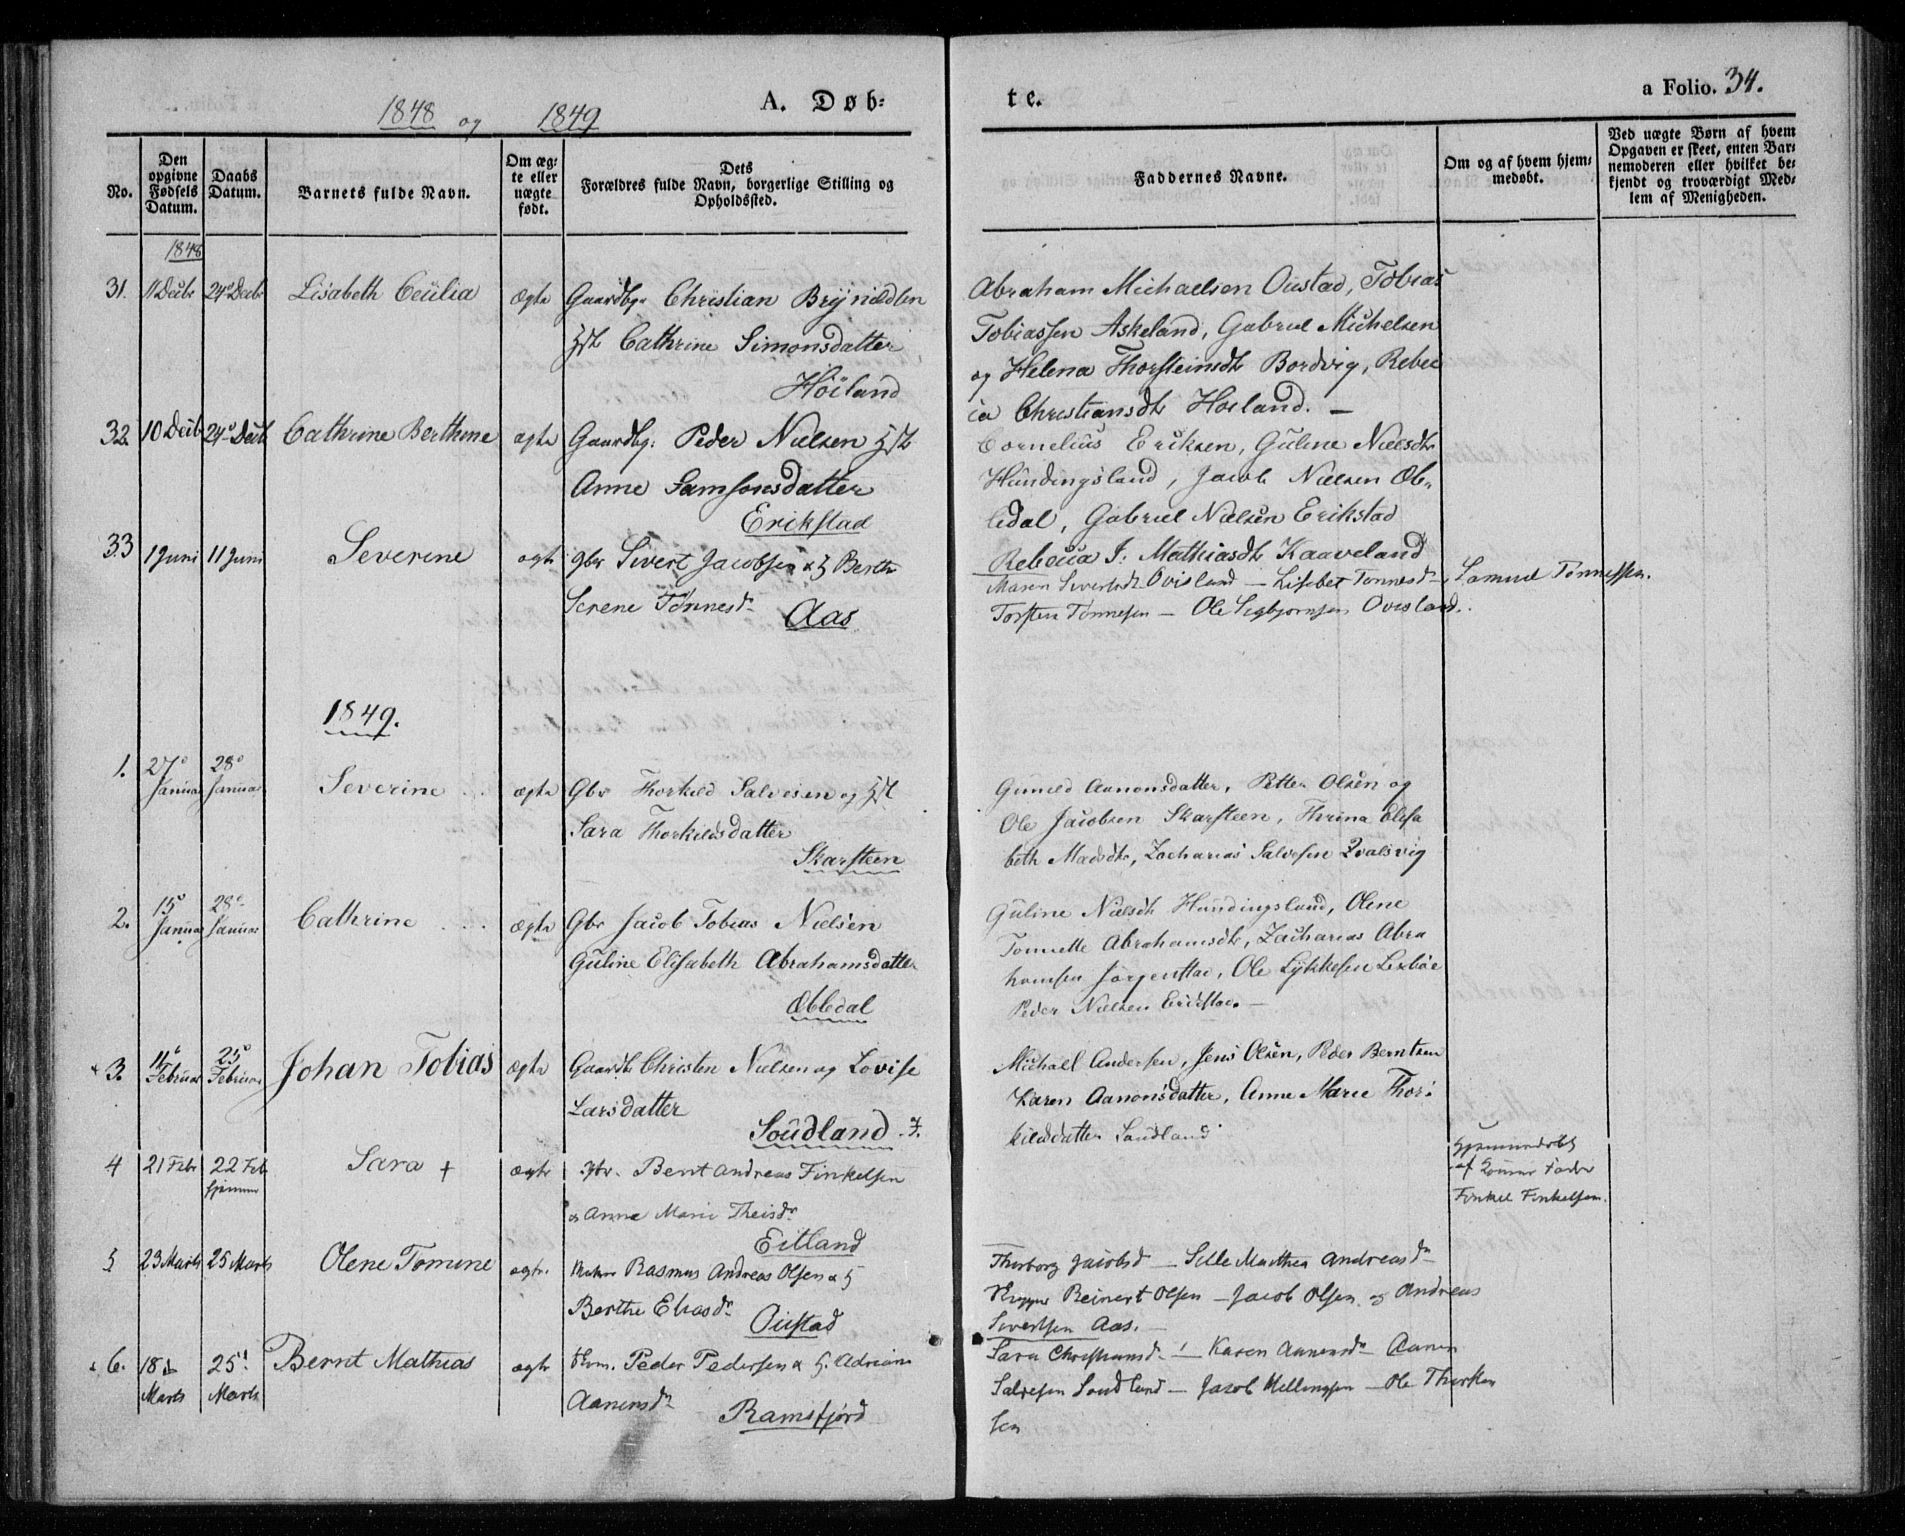 1848 og 1849
A. Døb-
te.
a Folio. 34.
No.
Den opgivne Fødsels Datum.
Daabs Datum.
Barnets fulde Navn.
Om ægte eller uægte født.
Dets Forældres fulde Navn, borgerlige Stilling og Opholdssted.
Faddernes Navne.
Om og af hvem hjemmedøbt.
Ved uægte Børn af hvem Opgaven er skeet, enten Barnemoderen eller hvilket bekjendt og troværdigt Medlem af Menigheden.
1848
31. 11 Decbr 24de Decbr Lisabeth Cecilia Ægte Gaardbgr Christian Brynildsen
Hst Cathrine Simonsdatter
Höiland
Abraham Michaelsen Oustad, Tobias
Tobiassen Askeland, Gabriel Michelsen
og Helena Thorsteinsdtr Bordvig, Rebec
ca Christiansdtr Hoiland. —
32. 10 Decb 24 Decb Cathrine Berthine ægte Gaardbg: Peder Nielsen Hst
Anne Samsonsdatter
Erikstad
Cornelius Eriksen, Guline Nielsdtr
Hundingsland, Jacob Nielsen Öb-
ledal, Gabriel Nielsen Erikstad
33 1 Juni 11 Juni Severine ægte gbr Sivert Jacobsen & H Berthe
Serene Tønnesdr
Aas
Rebecca J. Mathiasdtr Kaaveland
Maren Sivertsdr Ovisland — Lisebet Tønnesdr —
Torsten Tønnesen — Ole Sigbjørnsen Ovisland.
Samuel Tønnessen.
1849.
1. 27 Januar 28 Januar Severine ægte Gbr Thorkild Salvesen og Hst
Sara Thorkildsdatter
Skarsteen
Gunild Aanonsdatter, Petter Olsen og
Ole Jacobsen Skarsteen, Thrina Elisa
beth Madsdtr, Zacharias Salvesen Qvalsvig
2. 15 Januar 28 Januar Cathrine Ægte Gbr Jacob Tobias Nielsen
Guline Elisabeth Abrahamsdatter
Øbledal
Guline Nielsdtr Hundingsland, Olene
Tonnette Abrahamsdtr, Zacharias Abra
hamsen Jørgenstad, Ole Lykkesen Lexböe
Peder Nielsen Erickstad. —
3. 14 Februar 25 Februar Johan Tobias ægte Gaardb Christen Nielsen og Lovise
Larsdatter
Soudland
Michael Andersen, Jens Olsen, Peder Berntsen
Karen Aanonsdatter, Anne Marie Thor-
kildsdatter Soudland
4 21 Febr 22 Feb hjemme Sara + ægte gbr. Bernt Andreas Finkelsen
& Anne Marie Theisdr
Eitland
Hjemmedøbt
af Konens Fader
Finkel Finkelsen.
5 23 Marts 25 Marts Olene Tomine ægte Rasmus Andreas Olsen & H
Berthe Eliasdr
Oustad
Thorborg Jacobsd — Sille Marthea Andreasdr
Reinert Olsen — Jacob Olsen og Andreas
Sivertsen Aas. —
6. 18 Marts 25 Marts Bernt Mathias ægte Peder Pedersen & H. Adriane
Aanensdr
Ramsfjord
Sara Christiansdr — Karen Aanensdr Aanen
Salvesen Soudland — Jacob Mellingsen — Ole Therkel
sen